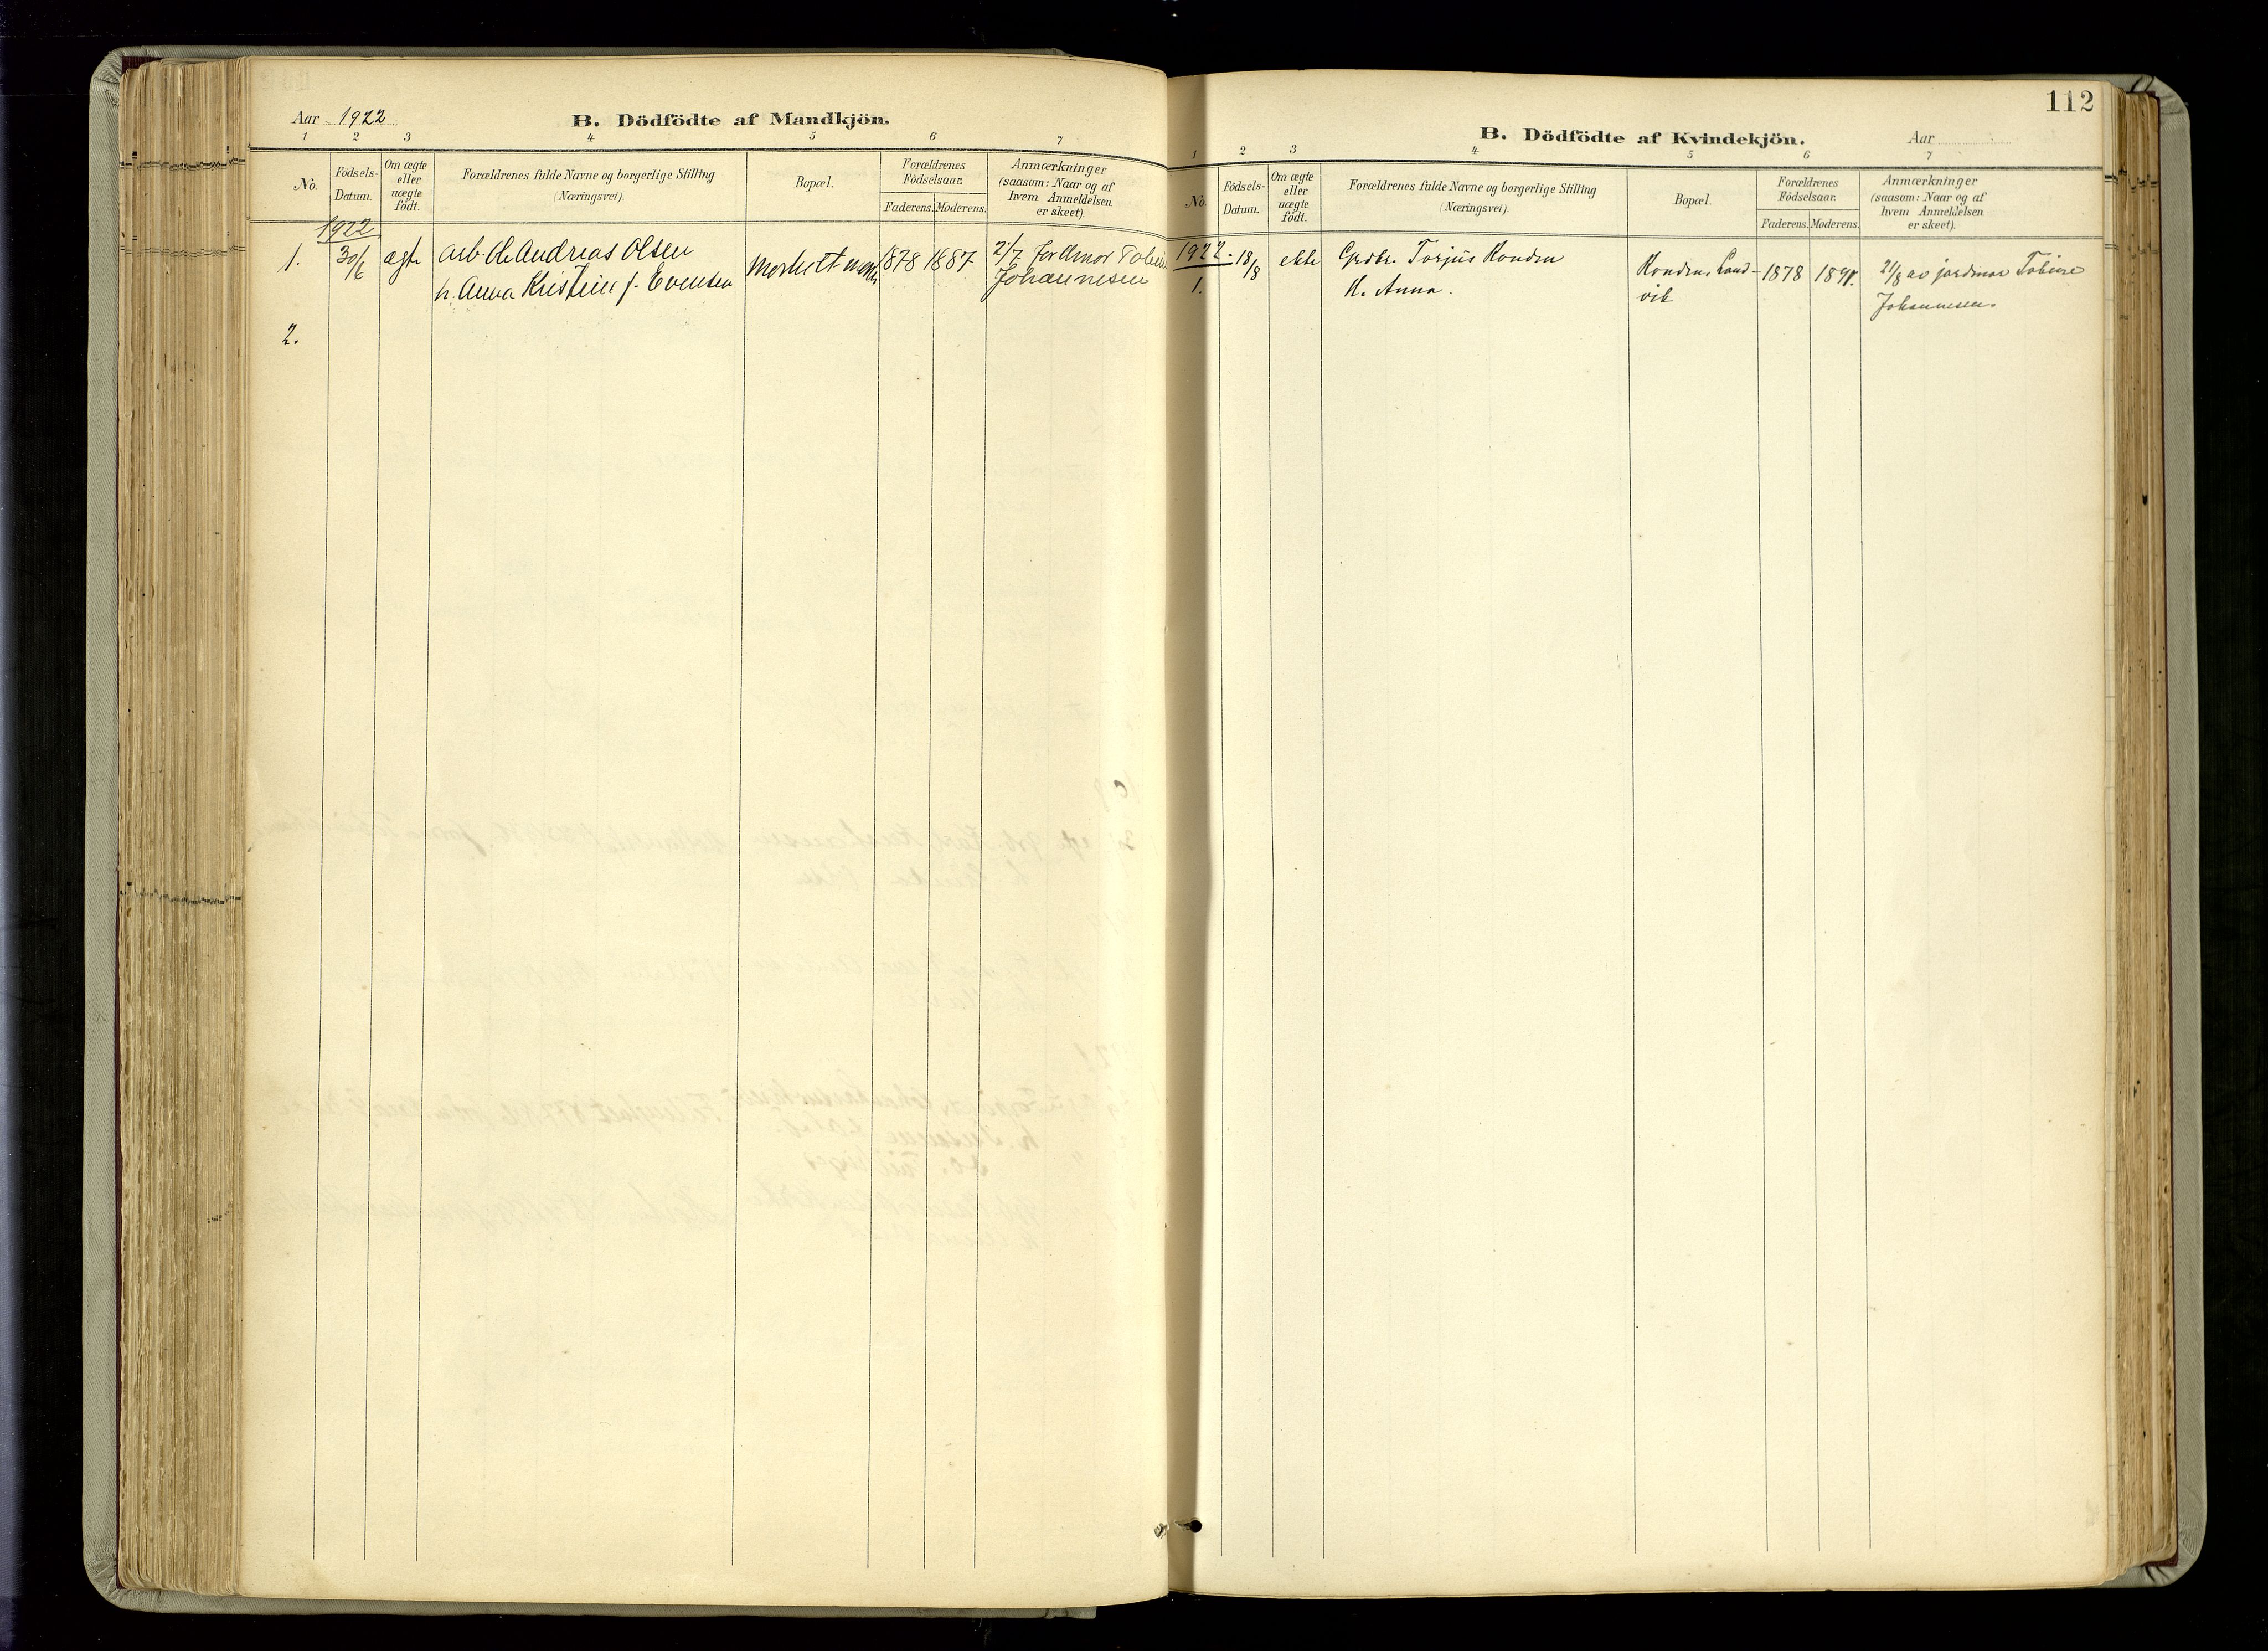 Aar 1922
B. Dödfödte af Mandkjön.
1 2 3 4 5 6 7
No.
Födsels-
Datum.
Om ægte
eller
uægte
födt.
Forældrenes fulde Navne og borgerlige Stilling
(Næringsvei).
Bopæl.
Forældrenes
Födselsaar.
Faderens. Moderens.
Anmærkninger
(saasom: Naar og af
hvem Anmeldelsen
er skeet).
1922
1. 30/6 ægte arb. Ole Andreas Olsen 1878 1887 2/7 Jordmor Tobine
h. Anna Kristine f. Evensen Johannesen
2.
112
B. Dödfödte af Kvindekjön.
Aar
1 2 3 4 5 6 7
No.
Födsels-
Datum.
Om ægte
eller
uægte
födt.
Forældrenes fulde Navne og borgerlige Stilling
(Næringsvei).
Bopæl.
Forældrenes
Födselsaar.
Faderens. Moderens.
Anmærkninger
(saasom: Naar og af
hvem Anmeldelsen
er skeet).
1922. 18/8 ekte Grdbr. Torjus Ronden Ronden, Land- 1878 21/8 av jordmor Tobine
1. H. Anna. vik Johannesen.